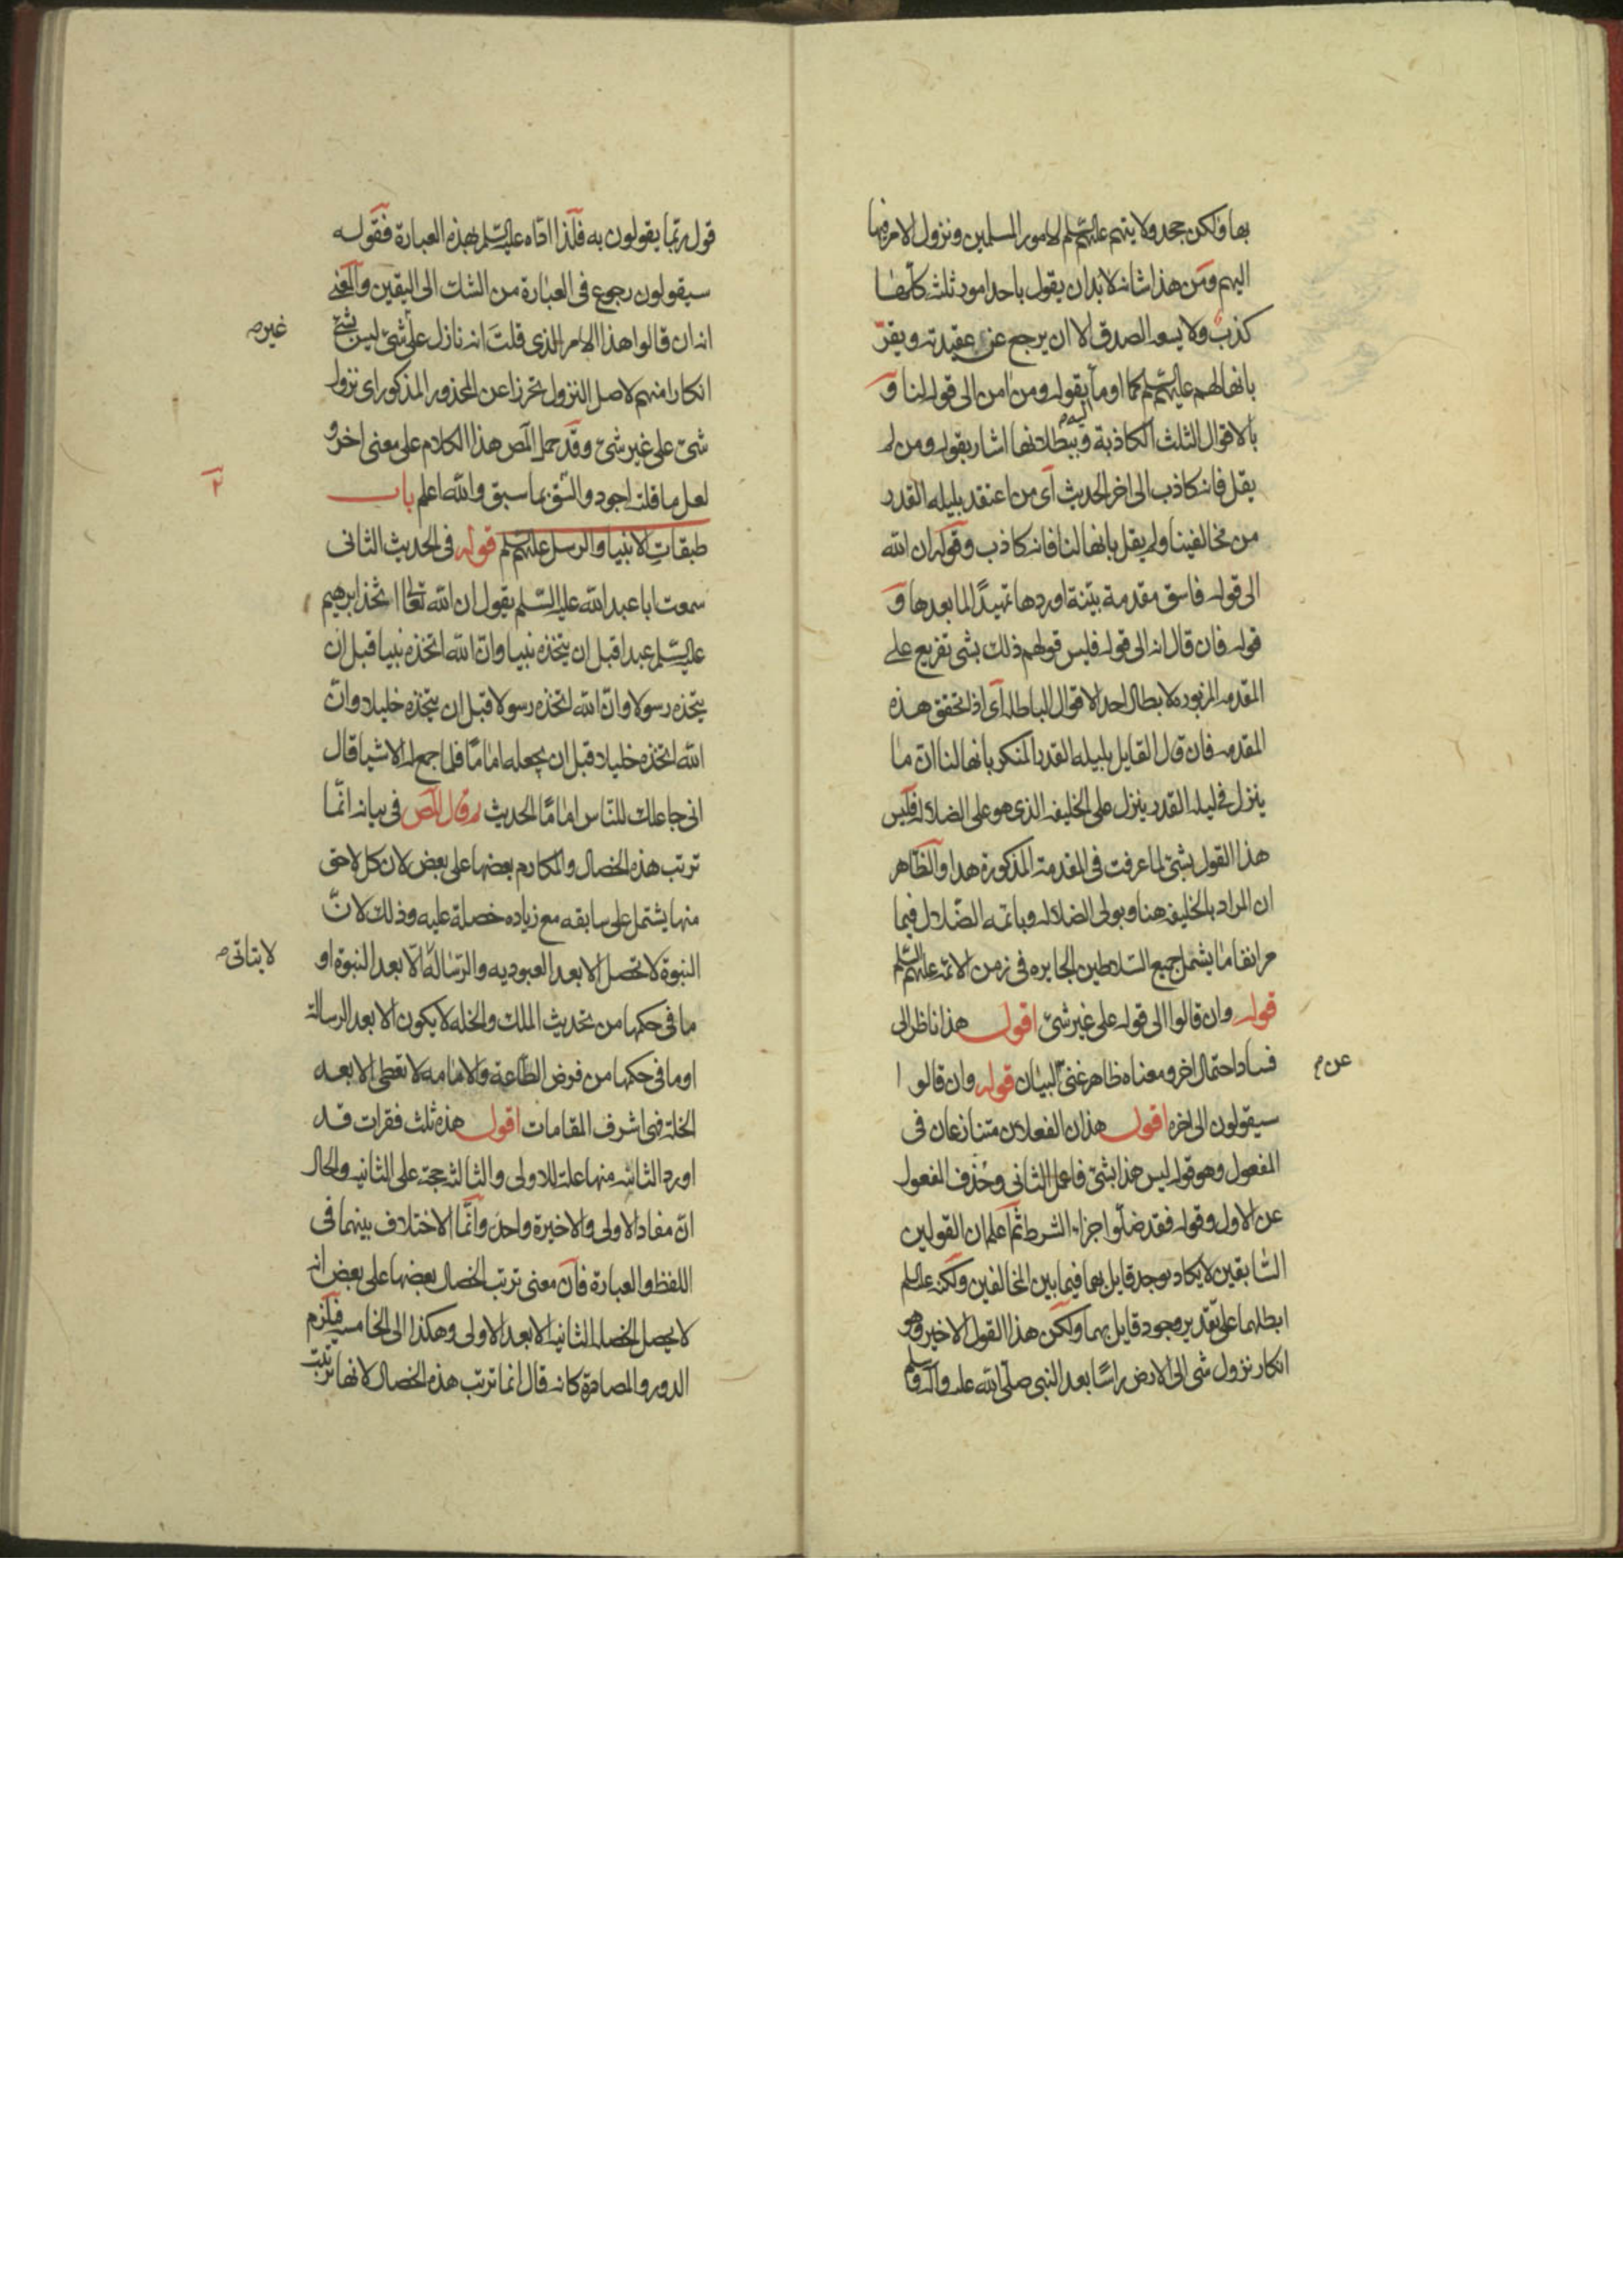 بها ولكن جحد ولايتهم عليهم السلم لامور المسلمين ونزول الامر فيها
اليهم ومن هذا شانه لابد ان يقول باحد امور ثلث كلها
كذب ولا يسعه الصدق الا ان يرجع عن عقيدته ويقر
بانها لهم عليهم السلم كما اومأ بقوله ومن امن الى قوله لنا و
بالاقوال الثلث الكاذبة وببطلانها اشار بقوله ومن لم
يقل فانه كاذب الى اخر الحديث اى من اعتقد بليله القدر
من مخالفينا ولم يقل بانها لنا فانه كاذب وقوله ان الله
الى قوله فاسق مقدمة بينة اوردها تمهيدًا لما بعدها و
قوله فان قال انه الى قوله فليس قولهم ذلك بشى تفريع على
المقدمه المزبوره لابطال احد الاقوال الباطله اى اذا تحقق هذه
المقدمه فان قال القايل بليله القدر المنكر بانها لنا ان ما
ينزل فى ليله القدر ينزل على الخليفه الذى هو على الضلاله فليس
هذا القول بشئ لما عرفت فى المقدمة المذكورة هذا والظاهر
ان المراد بالخليفه هنا وبولى الضلاله وبائمه الضلال فيما
مر انفا ما يشمل جميع السلاطين الجابره فى زمن الائمه عليهم السلم
قوله وان قالوا الى قوله على غير شئ اقول هذا ناظر الى
فساد احتمال اخر ومعناه ظاهر غنى البيان قوله وان قالوا
عن م
سيقولون الى اخره اقول هذان الفعلان متنازعان فى
المفعول وهو قوله ليس هذا بشئ فاعل الثانى وحذف المفعول
عن الاول وقوله فقد ضلوا جزاء الشرط ثم اعلم ان القولين
السابقين لا يكاد يوجد قايل بهما فيما بين المخالفين ولكنه عليه السلم
ابطلهما على تقدير وجود قايل بهما ولكن هذا القول الاخير وهو
انكار نزول شى الى الارض راسًا بعد النبى صلى الله عليه واله وسلم
قول ربما يقولون به فلذا اداه عليه السلم بهذه العبارة فقوله
سيقولون رجوع فى العبارة من الشك الى اليقين والمعنى
انه ان قالوا هذا الامر الذى قلت انه نازل على شئ ليس بشئ
غير م
انكارا منهم لاصل النزول تحرزا عن المحذور المذكور اى نزول
شئ على غير شئ وقد حمل المص هذا الكلام على معنى اخر و
لعل ما قلنه اجود والسق بما سبق والله اعلم باب
٢
طبقات الانبيا والرسل عليهم السلم قوله فى الحديث الثانى
سمعت ابا عبد الله عليه السلم يقول ان الله تعالى اتخذ ابرهيم
عليه السلم عبدا قبل ان يتخذه نبيا وان الله اتخذه نبيا قبل ان
يتخذه رسولا وان الله اتخذه رسولا قبل ان يتخذه خليلا وان
الله اتخذه خليلا قبل ان يجعله امامًا فلما جمع له الاشيا قال
انى جاعلك للناس امامًا الحديث قال المص فى بيانه انما
ترتب هذه الخصال والمكارم بعضها على بعض لان كل لاحق
منها يشتمل على سابقه مع زياده خصلة عليه وذلك لان
النبوة لا تحصل الا بعد العبوديه والرسالة الا بعد النبوة او
لا يتاتى م
ما فى حكمها من تحديث الملك والخله لا يكون الا بعد الرسالة
او ما فى حكمها من فرض الطاعة والامامه لا تعطى الا بعد
الخلة فهى اشرف المقامات اقول هذه ثلث فقرات قد
اورد الثانيه منها علة للاولى والثالثه حجة على الثانيه والحال
ان مفاد الاولى والاخيرة واحد وانما الاختلاف بينهما فى
اللفظ والعبارة فان معنى ترتب الخصال بعضها على بعض انه
لا يحصل الخصله الثانيه الا بعد الاولى وهكذا الى الخامسه فلزم
الدور والمصادرة كانه قال انما ترتب هذه الخصال لانها ترتبت